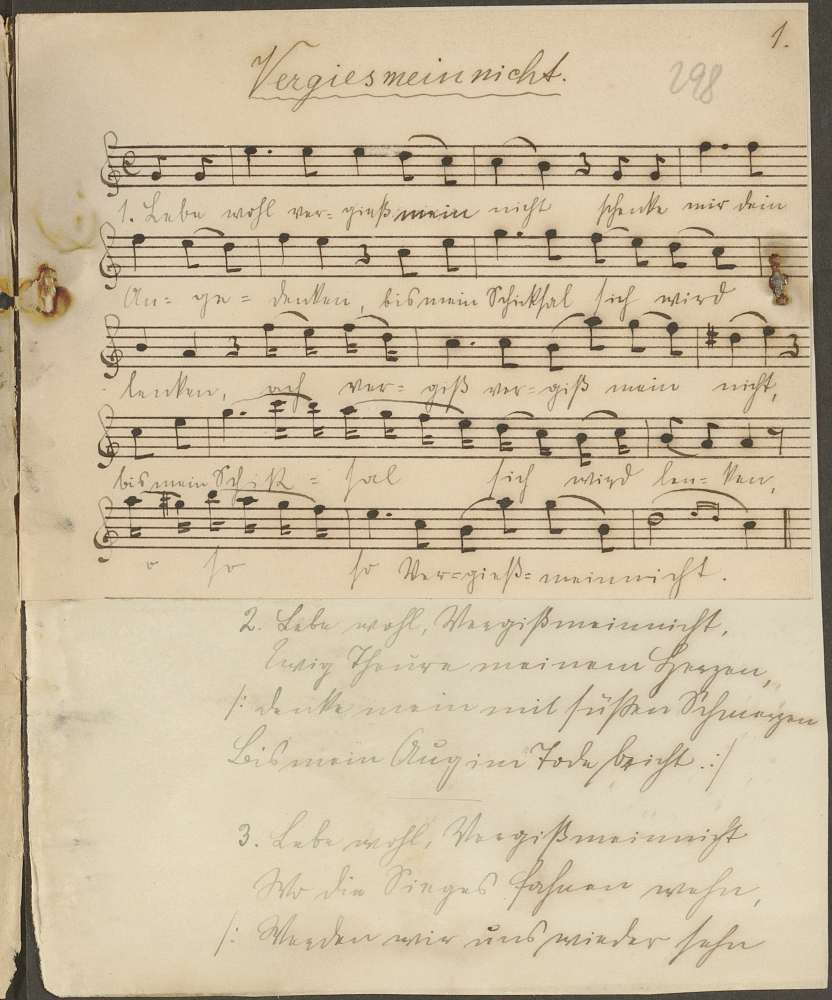 1.
Vergiesmeinnicht.
298
1. Lebe wohl ver- gieß mein nicht schenke mir dein
An- ge- denken, bis mein Schicksal sich wird
lenken, ach ver- giß ver- giß mein nicht,
bis mein Schick - sal sich wird len- ken,
o so so Ver-gieß-meinnicht.
2. Lebe wohl, Vergißmeinnicht,
Ewig Theure meinem Herzen,
/: denke mein mit süßen Schmerzen
Bis mein Aug im Tode bricht :/
3. Lebe wohl, Vergißmeinnicht
Wo die Sieges Fahnen wehn,
/: Werden wir uns wieder sehn